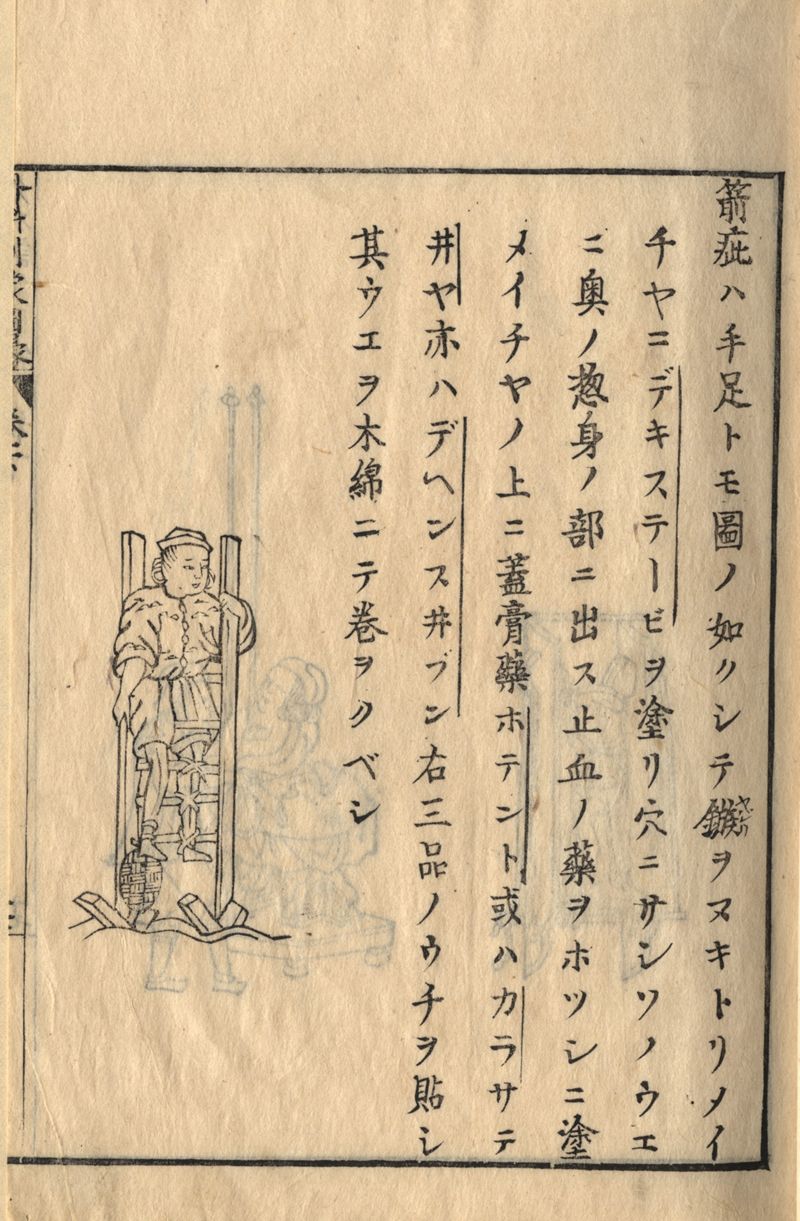 箭疵ハ手足トモ圖ノ如クシテ鏃ヲヌキトリメイ
チヤニデキステービヲ塗リ穴ニサシソノウエ
ニ奥ノ惣身ノ部ニ出ス止血ノ藥ヲホツシニ塗
メイチヤノ上ニ蓋膏藥ホテント或ハカラサテ
井ヤ亦ハデヘンス井ブン右三品ノウチヲ貼シ
其ウエヲ木綿ニテ卷ヲクベシ